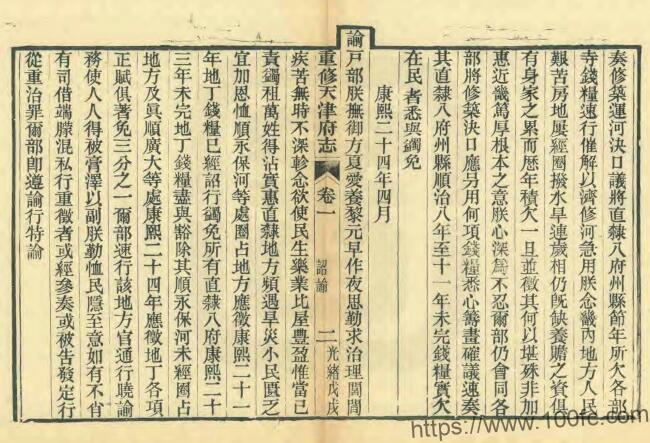 奏修築運河決口議將直隸八府州縣節年所欠各部
寺錢糧速行催解以濟修河急用朕念畿內地方人民
艱苦房地屢經圈撥水旱連歲相仍既缺養贍之資俱
有身家之累而歷年積欠一旦並徵其何以堪殊非加
惠近畿篤厚根本之意朕心深爲不忍爾部仍會同各
部將修築決口應另用何項錢糧悉心籌畫確議速奏
其直隸八府州縣順治八年至十一年未完錢糧實欠
在民者悉與蠲免
康熙二十四年四月
諭戶部朕撫御方夏愛養黎元早作夜思勤求治理閭閻
重修天津府志 卷一 詔諭 二 光緒戊戌
疾苦無時不深軫念欲使民生樂業比屋豐盈惟當己
責蠲租萬姓得沾實惠直隸地方頻遇旱災小民匱乏
宜加恩恤順永保河等處圈占地方應徵康熙二十一
年地丁錢糧已經詔行蠲免所有直隸八府康熙二十
三年未完地丁錢糧盡與豁除其順永保河未經圈占
地方及眞順廣大等處康熙二十四年應徵地丁各項
正賦俱著免三分之一爾部速行該地方官通行曉諭
務使人人得被膏澤以副朕勤恤民隱至意如有不肖
有司借端朦混私行重徵者或經參奏或被告發定行
從重治罪爾部卽遵諭行特諭
https://www.100fe.com